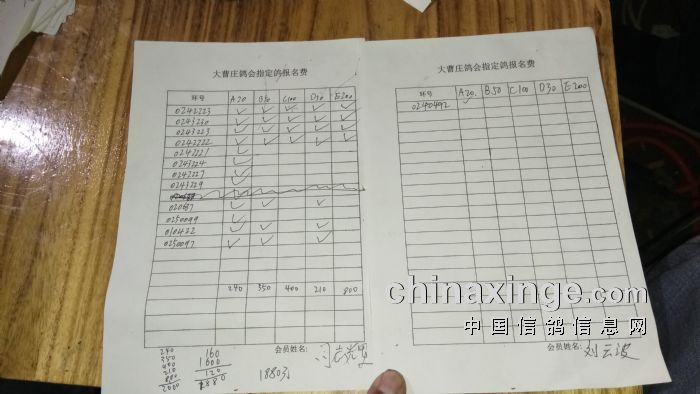 大曹庄鸽会指定鸽报名费
环号 A20 B50 C100 D30 E200
0242223 ✓ ✓ ✓ ✓ ✓
0243230 ✓ ✓ ✓ ✓ ✓
0243223 ✓ ✓ ✓ ✓ ✓
0242222 ✓ ✓ ✓ ✓ ✓
0242221 ✓
0243224 ✓
0242227 ✓
0243229 ✓
✓ ✓ ✓
0250099 ✓
010422 ✓ ✓ ✓
0250097 ✓ ✓ ✓
240 350 400 210 800
会员姓名:
240
350
400
210
800
2000
160
1600
120
1880
大曹庄鸽会指定鸽报名费
环号 A20 B50 C100 D30 E200
0240492 ✓
会员姓名: 刘云波
chinaxinge.com
中国信鸽信息网